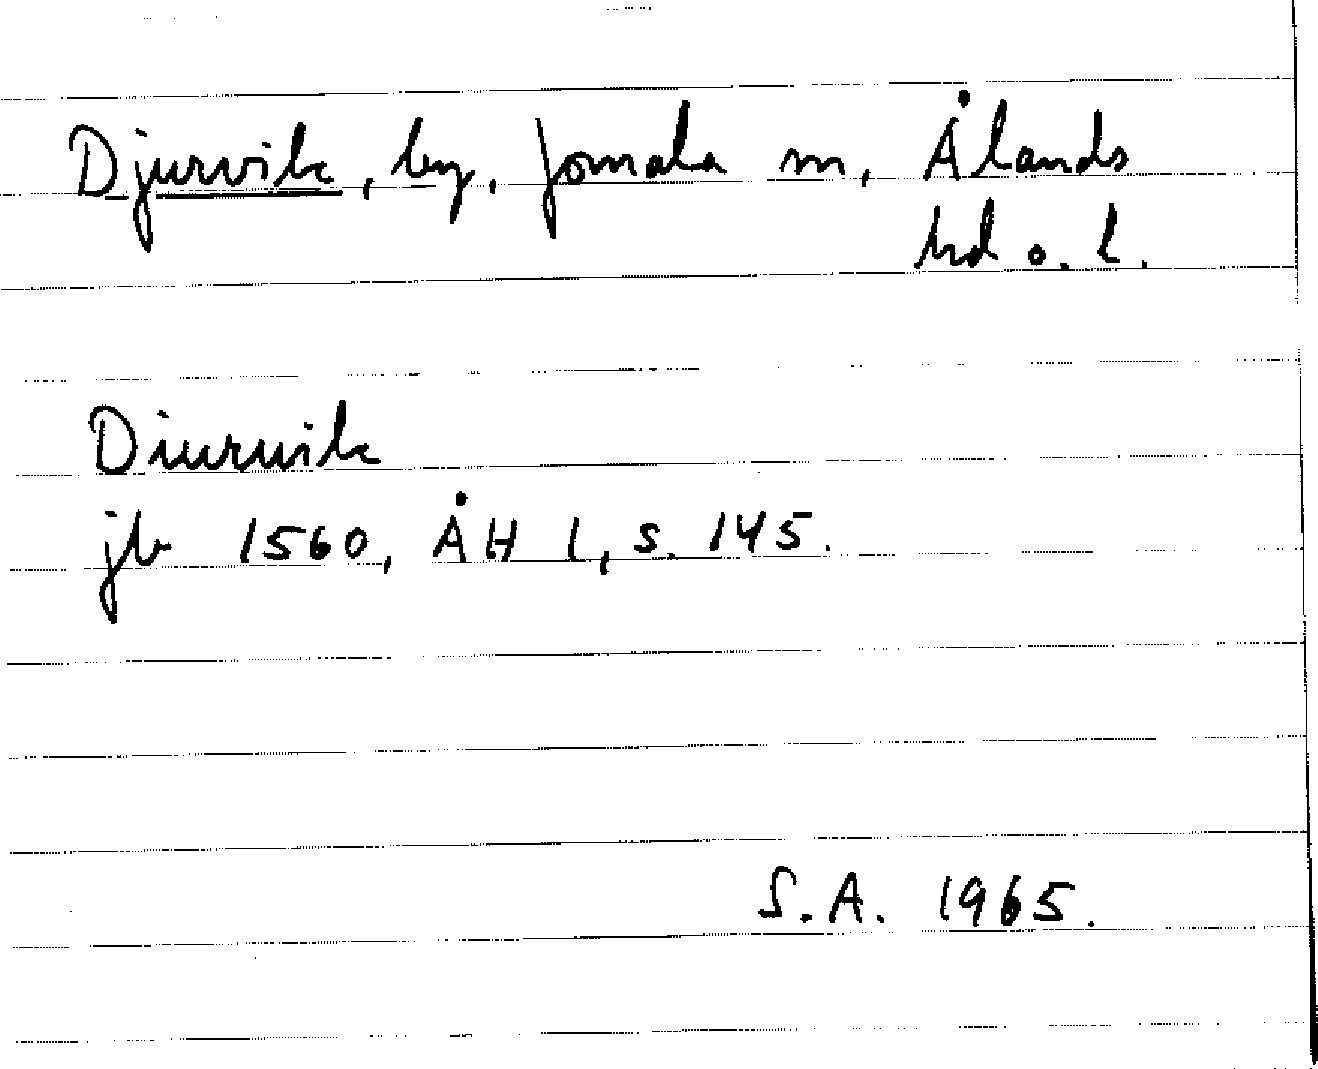 Djurvik, by, Jomala sn, Ålands
hd o. l.
Diuruik
jb 1560, ÅH 1, s. 145.
S.A. 1965.